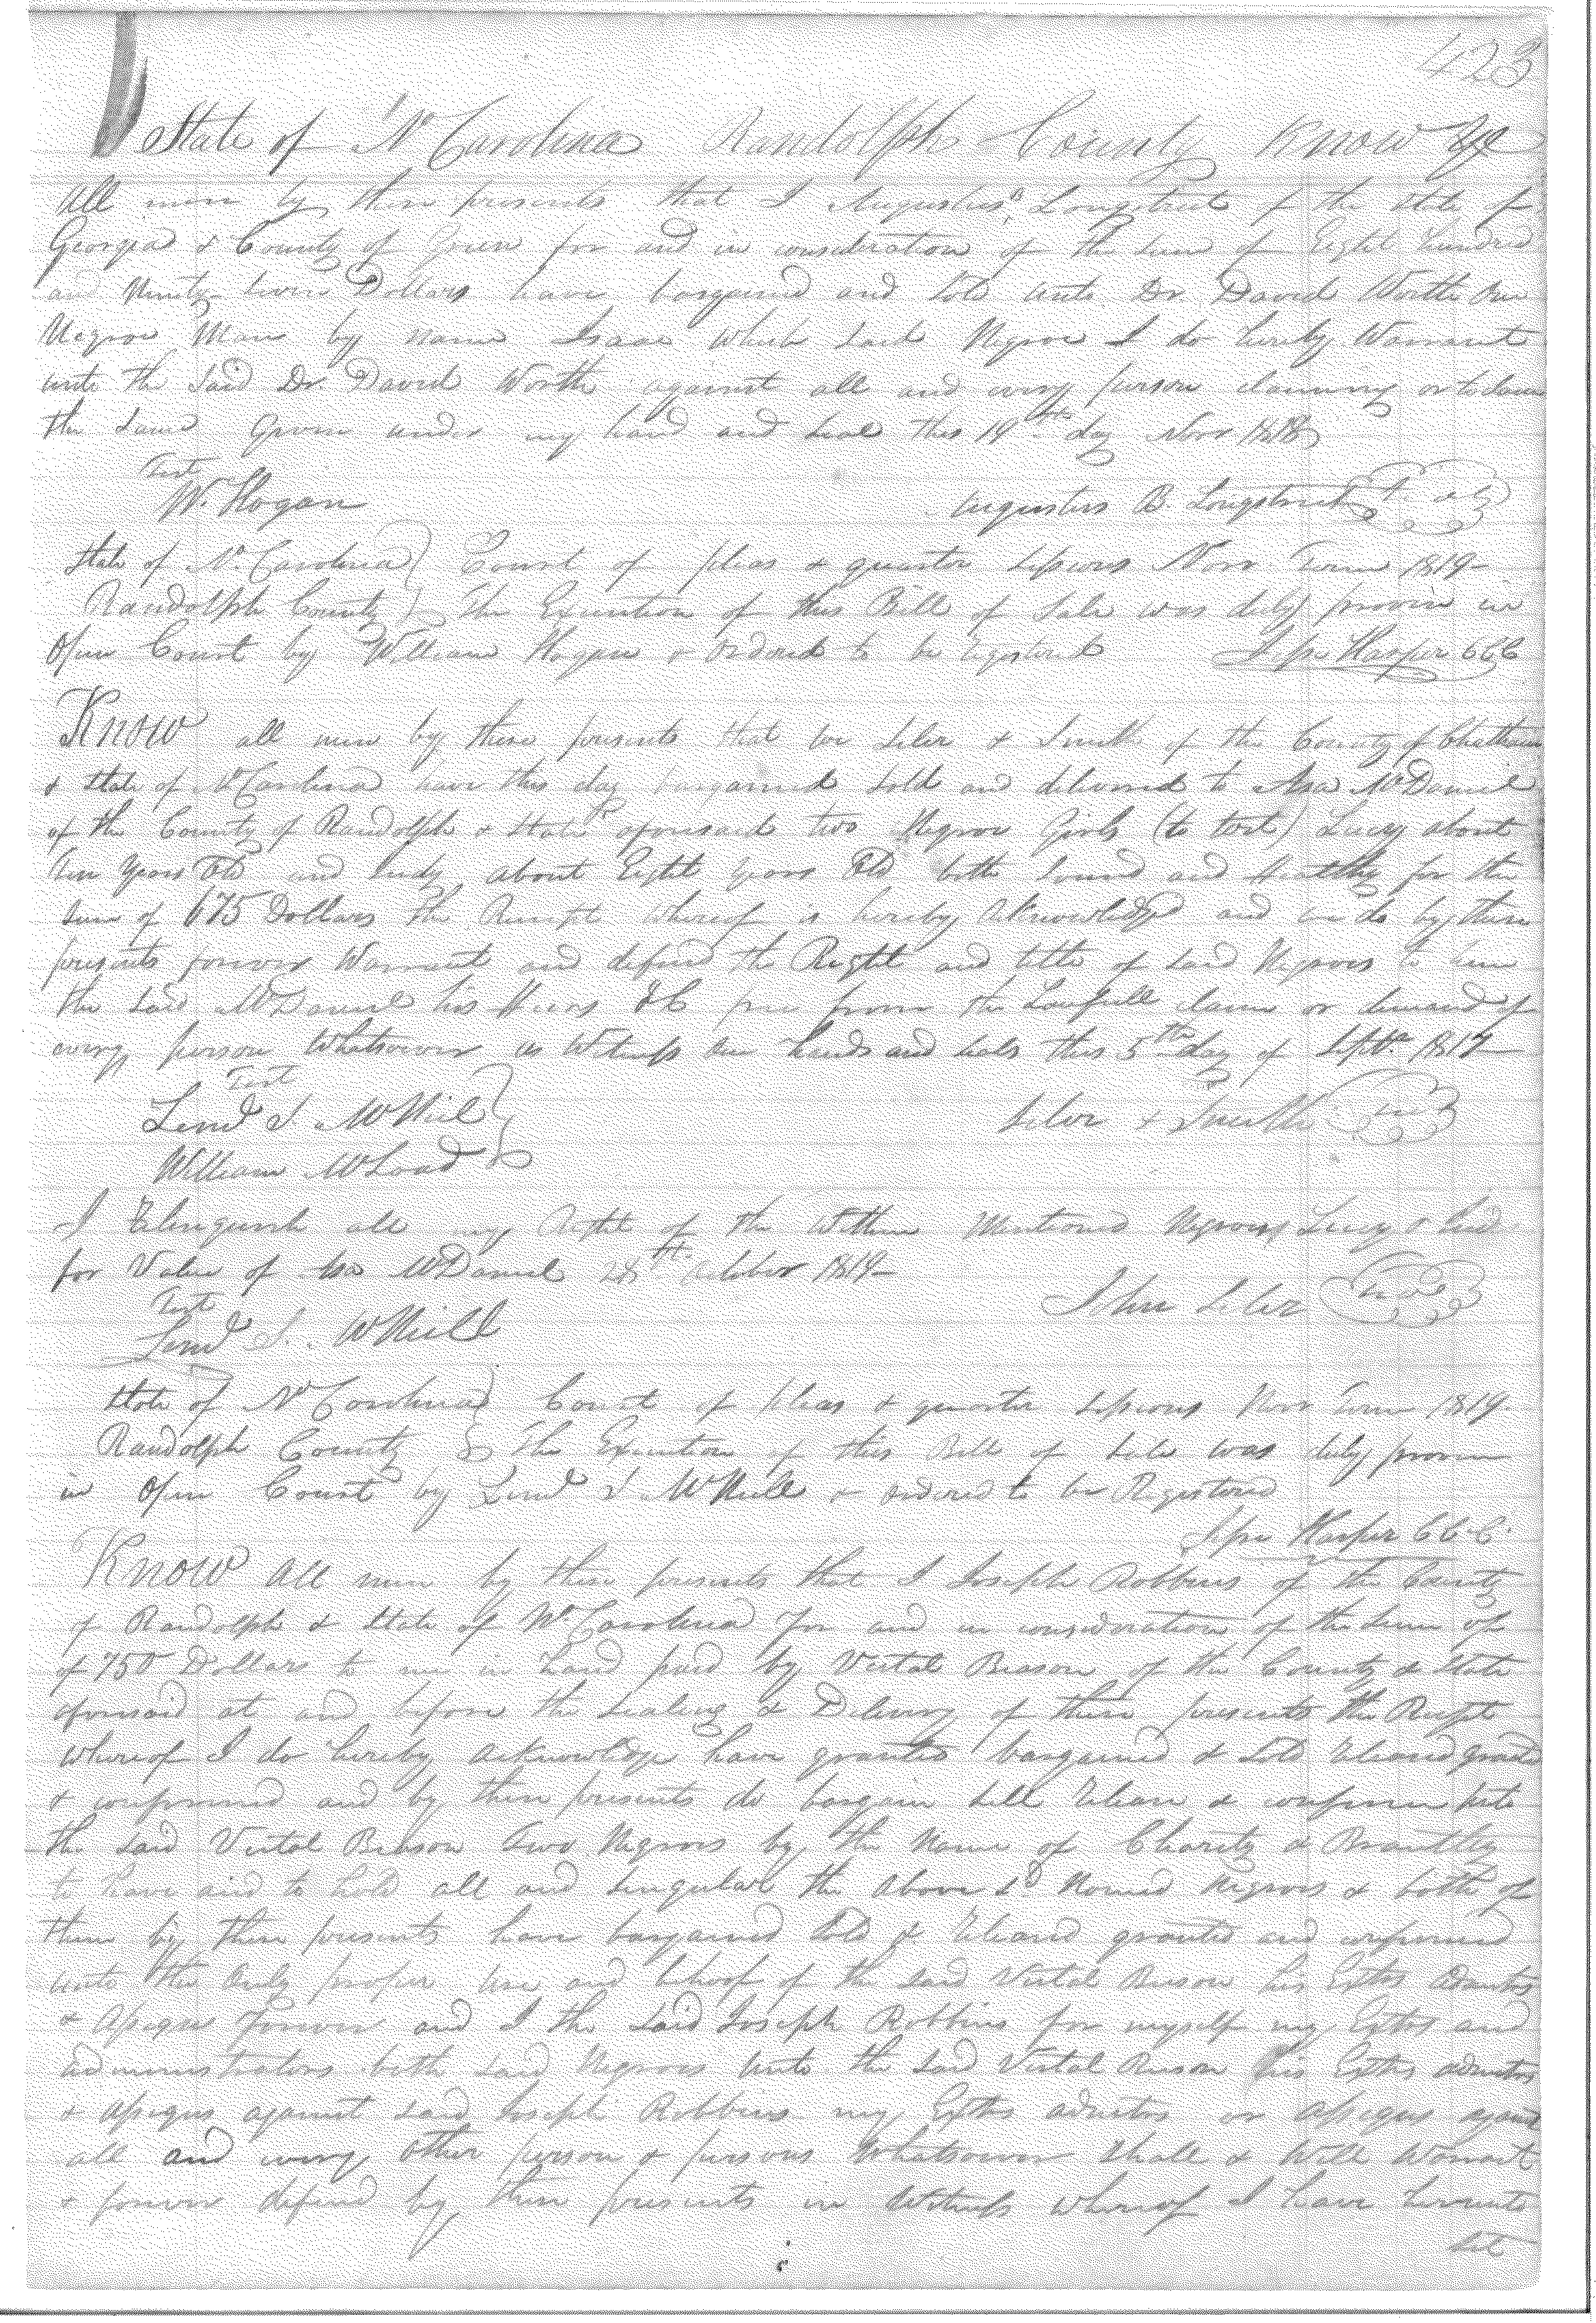 423
State of No Carolina Randolph County Know Ye
all men by these presents that I Augustus B. Longstreet of the State of
Georgia & County of Green for and in consideration of the Sum of Eight hundred
and Ninety Seven Dollars have bargained and Sold unto Dr. David Worth One
Negroe Man by name Isaac which Said Negroe I do hereby Warrant
unto the Said Dr David Worth against all and every person claiming or to claim
the Same Given under my hand and Seal this 19th day Novr 1818
Test
W. Hogan
Augustus B. Longstreet Seal
State of No. Carolina Court of pleas & quarter Sessions Novr Term 1819
Randolph County The Execution of this Bill of Sale was duly proven in
Open Court by William Hogan & Ordered to be registered Jesse Harper CCC
Know all men by these presents that we Siler & Smith of the County of Chatham
& State of No Carolina have this day bargained Sold and delivered to Asa McDaniel
of the County of Randolph & State aforesaid two Negroe Girls (to wit) Lucy about
ten years Old and Judy about Eight years Old both Sound and healthy for the
Sum of 675 Dollars the Receipt whereof is hereby acknowledged and we do by these
presents forever Warrant and defend the Right and title of Said Negroes to him
the Said McDaniel his Heirs &C free from the Lawfull claim or demand of
every person Whatsoever as Witness our hands and Seals this 5th day of Septr. 1817
Test
Lemd S. McNeil
William McLoad
Siler & Smith Seal
I Relinquish all my Right of the Within Mentioned Negroes Lucy &
for Value of Asa McDaniel 28th October 1819
Test
Lemd S. McNeill
John Siler Seal
State of No Carolina Court of pleas & quarter Sessions Novr Term 1819
Randolph County The Execution of this Bill of Sale was duly proven
in Open Court by Lemd S McNeill & ordered to be Registered
Jesse Harper CCC
Know all men by these presents that I Joseph Robbins of the County
of Randolph & State of No Carolina for and in consideration of the Sum of
of 750 Dollars to me in hand paid by Vestal Beason of the County & State
aforesaid at and before the Sealing & Delivery of these presents the Receipt
whereof I do hereby acknowledge have granted bargained & Sold Released granted
& confirmed and by these presents do bargain Sell Release & confirm unto
the Said Vestal Beason Two Negroes by the Name of Charity & Brantley
to have and to hold all and Singular the above Sd Named Negroes & both of
them by these presents have bargained Sold & Released granted and confirmed
unto the Only proper use and behoof of the Said Vestal Beason his Extrs Admtrs
& Assigns Forever and I the Said Joseph Robbins for myself my Extrs and
administrators both Said Negroes unto the Said Vestal Beason his Extrs admtrs
& assigns against Said Joseph Robbins my Extrs admtrs or assigns against
all and every other person & persons Whatsoever Shall & Will Warrant
& forever defend by these presents in Witness whereof I have hereunto
Set